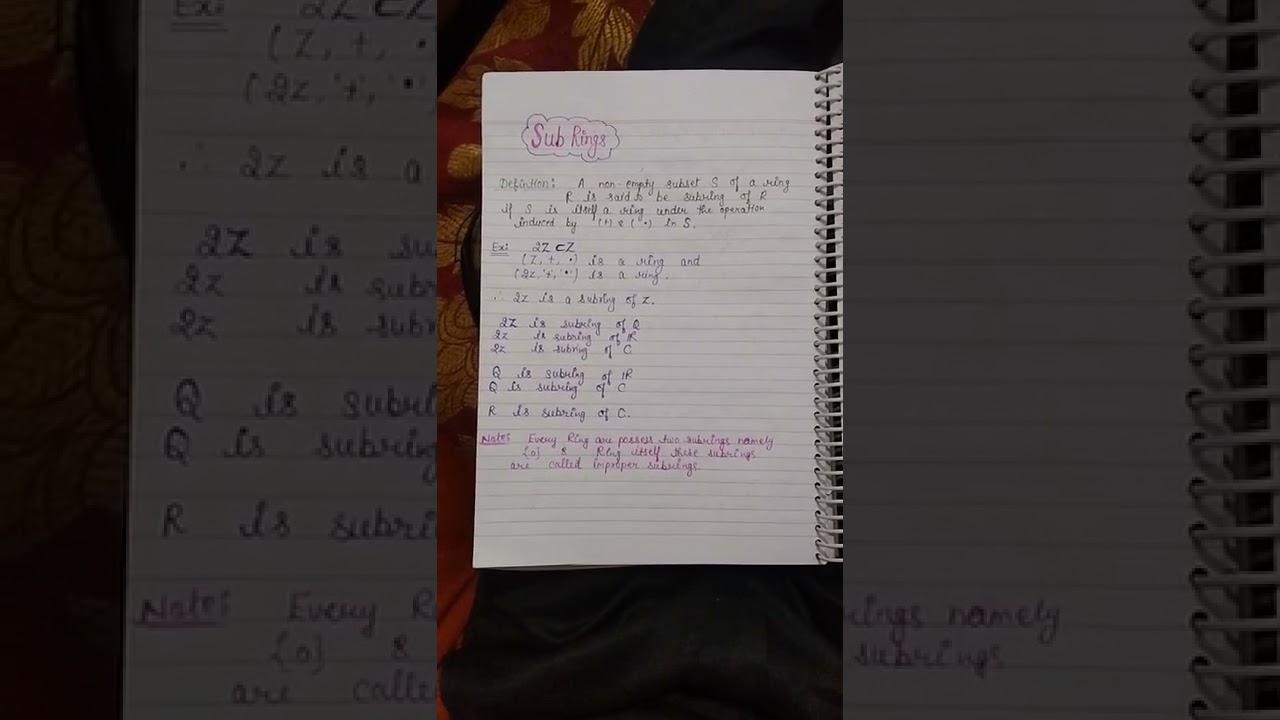 Sub Rings
Definition: A non-empty subset S of a ring
R is said to be subring of R
if S is itself a ring under the operation
induced by '(+) & (·) in S.
Ex: 2Z ⊂ Z
(Z, +, ·) is a ring and
(2z, '+', '·') is a ring.
∴ 2z is a subring of z.
2Z is subring of Q
2z is subring of IR
2z is subring of C
Q is subring of IR
Q is subring of C
R is subring of C.
Note: Every Ring are possess two subrings namely
{0} & Ring itself these subrings
are called improper subrings